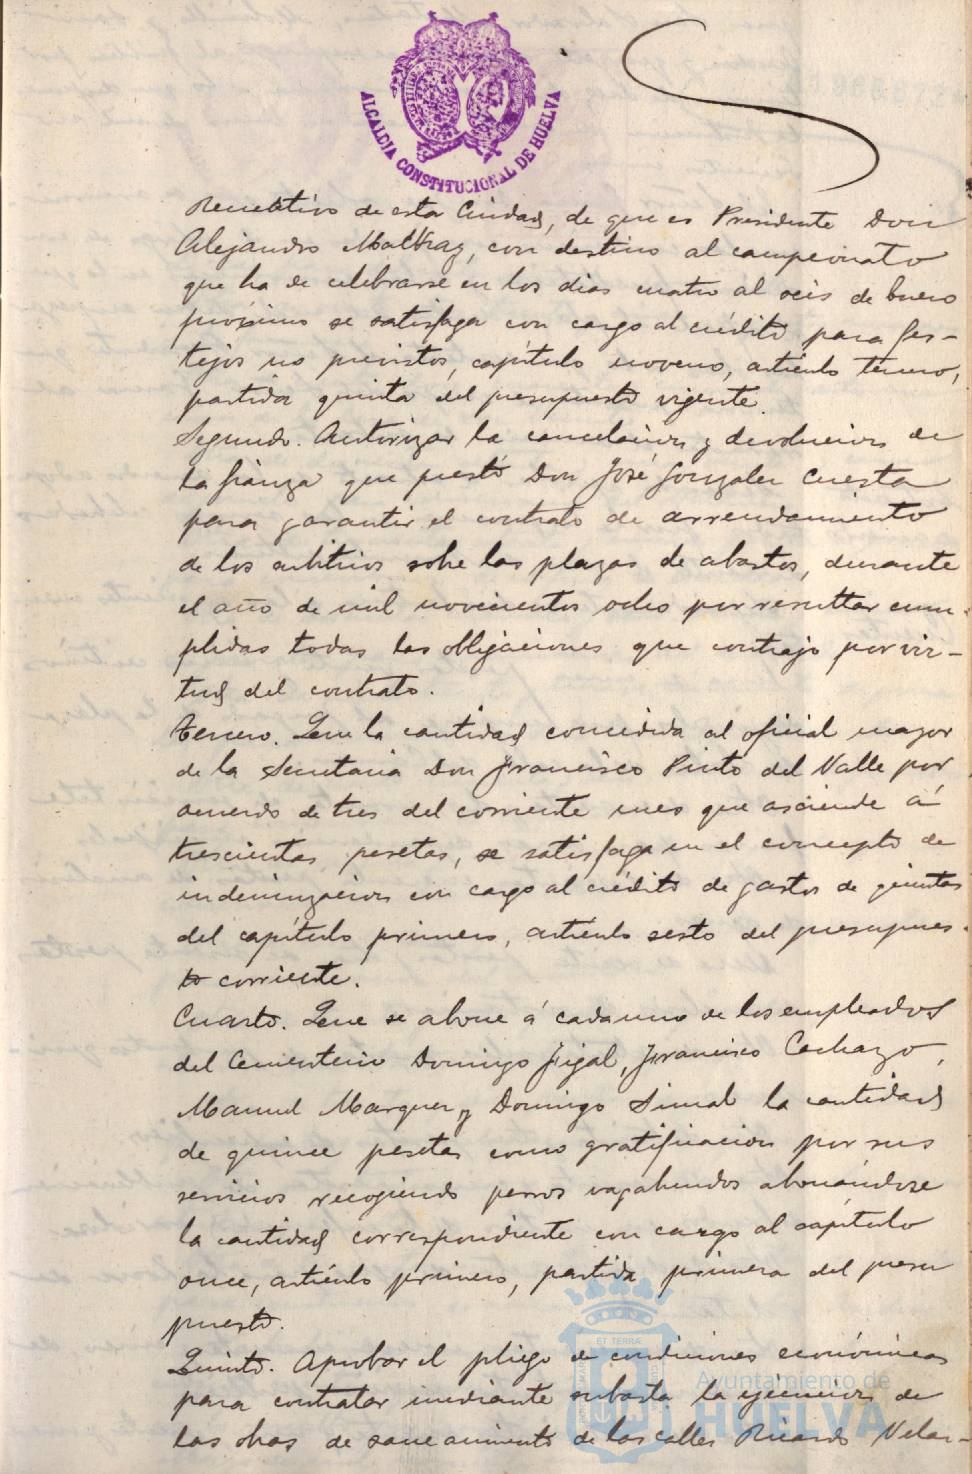 ALCALDIA CONSTITUCIONAL DE HUELVA
Recreativo de esta Ciudad, de que es Presidente Don
Alejandro Mackay, con destino al campeonato
que ha de celebrarse en los dias cuatro al seis de Enero
próximo se satisfaga con cargo al crédito para fes-
tejos no previstos, capítulo noveno, artículo tercero,
partida quinta del presupuesto vigente.
Segundo. Autorizar la cancelacion y devolucion de
la fianza que prestó Don José Gonzalez Cuesta
para garantir el contrato de arrendamiento
de los arbitrios sobre las plazas de abastos, durante
el año de mil novecientos ocho por resultar cum-
plidas todas las obligaciones que contrajo por vir-
tud del contrato.
Tercero. Que la cantidad concedida al oficial mayor
de la Secretaria Don Francisco Pinto del Valle por
acuerdo de tres del corriente mes que asciende á
trescientas pesetas, se satisfaga en el concepto de
indemnizacion con cargo al crédito de gastos de quintas
del capítulo primero, artículo sesto del presupues-
to corriente.
Cuarto. Que se abone á cada uno de los empleados
del Cementerio Domingo Gigal, Francisco Cachazo,
Manuel Marquez y Domingo la cantidad
de quince pesetas como gratificacion por sus
servicios recogiendo perros vagabundos abonándose
la cantidad correspondiente con cargo al capítulo
once, artículo primero, partida primera del presu
puesto.
Quinto. Aprobar el pliego de condiciones económicas
para contratar mediante subasta la ejecucion de
las obras de saneamiento de las calles Ricardo Velaz-
ET TERRA
Ayuntamiento de
HUELVA